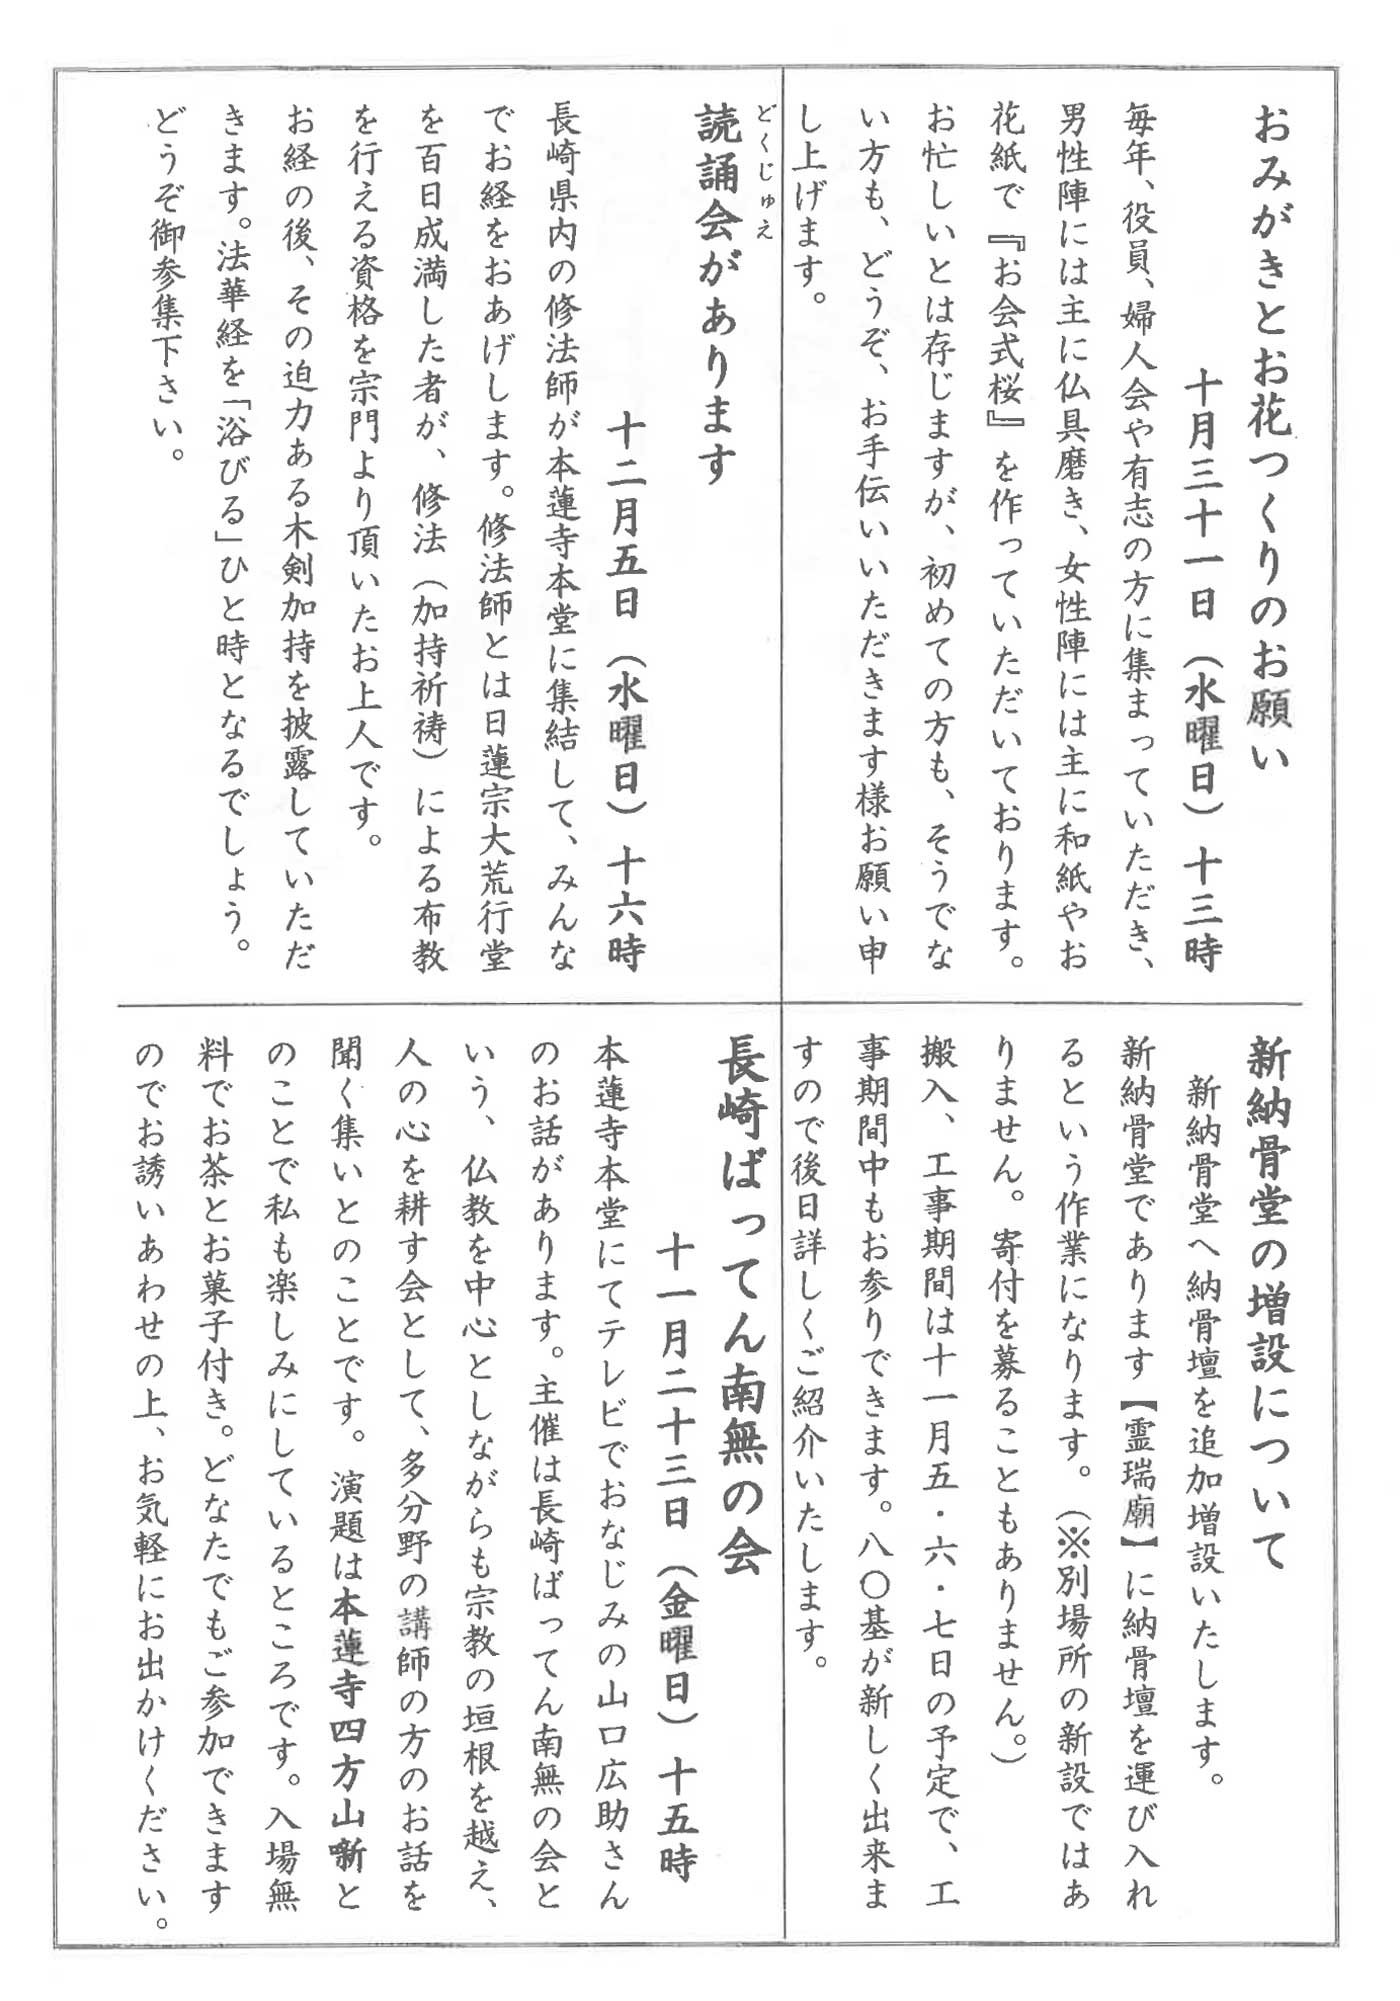 おみがきとお花つくりのお願い
十月三十一日（水曜日）十三時
毎年、役員、婦人会や有志の方に集まっていただき、
男性陣には主に仏具磨き、女性陣には主に和紙やお
花紙で『お会式桜』を作っていただいております。
お忙しいとは存じますが、初めての方も、そうでな
い方も、どうぞ、お手伝いいただきます様お願い申
し上げます。
どくじゅえ
読誦会があります
十二月五日（水曜日）十六時
長崎県内の修法師が本蓮寺本堂に集結して、みんな
でお経をおあげします。修法師とは日蓮宗大荒行堂
を百日成満した者が、修法（加持祈祷）による布教
を行える資格を宗門より頂いたお上人です。
お経の後、その迫力ある木剣加持を披露していただ
きます。法華経を「浴びる」ひと時となるでしょう。
どうぞ御参集下さい。
新納骨堂の増設について
新納骨堂へ納骨壇を追加増設いたします。
新納骨堂であります【霊瑞廟】に納骨壇を運び入れ
るという作業になります。（※別場所の新設ではあ
りません。寄付を募ることもありません。）
搬入、工事期間は十一月五・六・七日の予定で、工
事期間中もお参りできます。八〇基が新しく出来ま
すので後日詳しくご紹介いたします。
長崎ばってん南無の会
十一月二十三日（金曜日）十五時
本蓮寺本堂にてテレビでおなじみの山口広助さん
のお話があります。主催は長崎ばってん南無の会と
いう、仏教を中心としながらも宗教の垣根を越え、
人の心を耕す会として、多分野の講師の方のお話を
聞く集いとのことです。演題は本蓮寺四方山噺と
のことで私も楽しみにしているところです。入場無
料でお茶とお菓子付き。どなたでもご参加できます
のでお誘いあわせの上、お気軽にお出かけください。